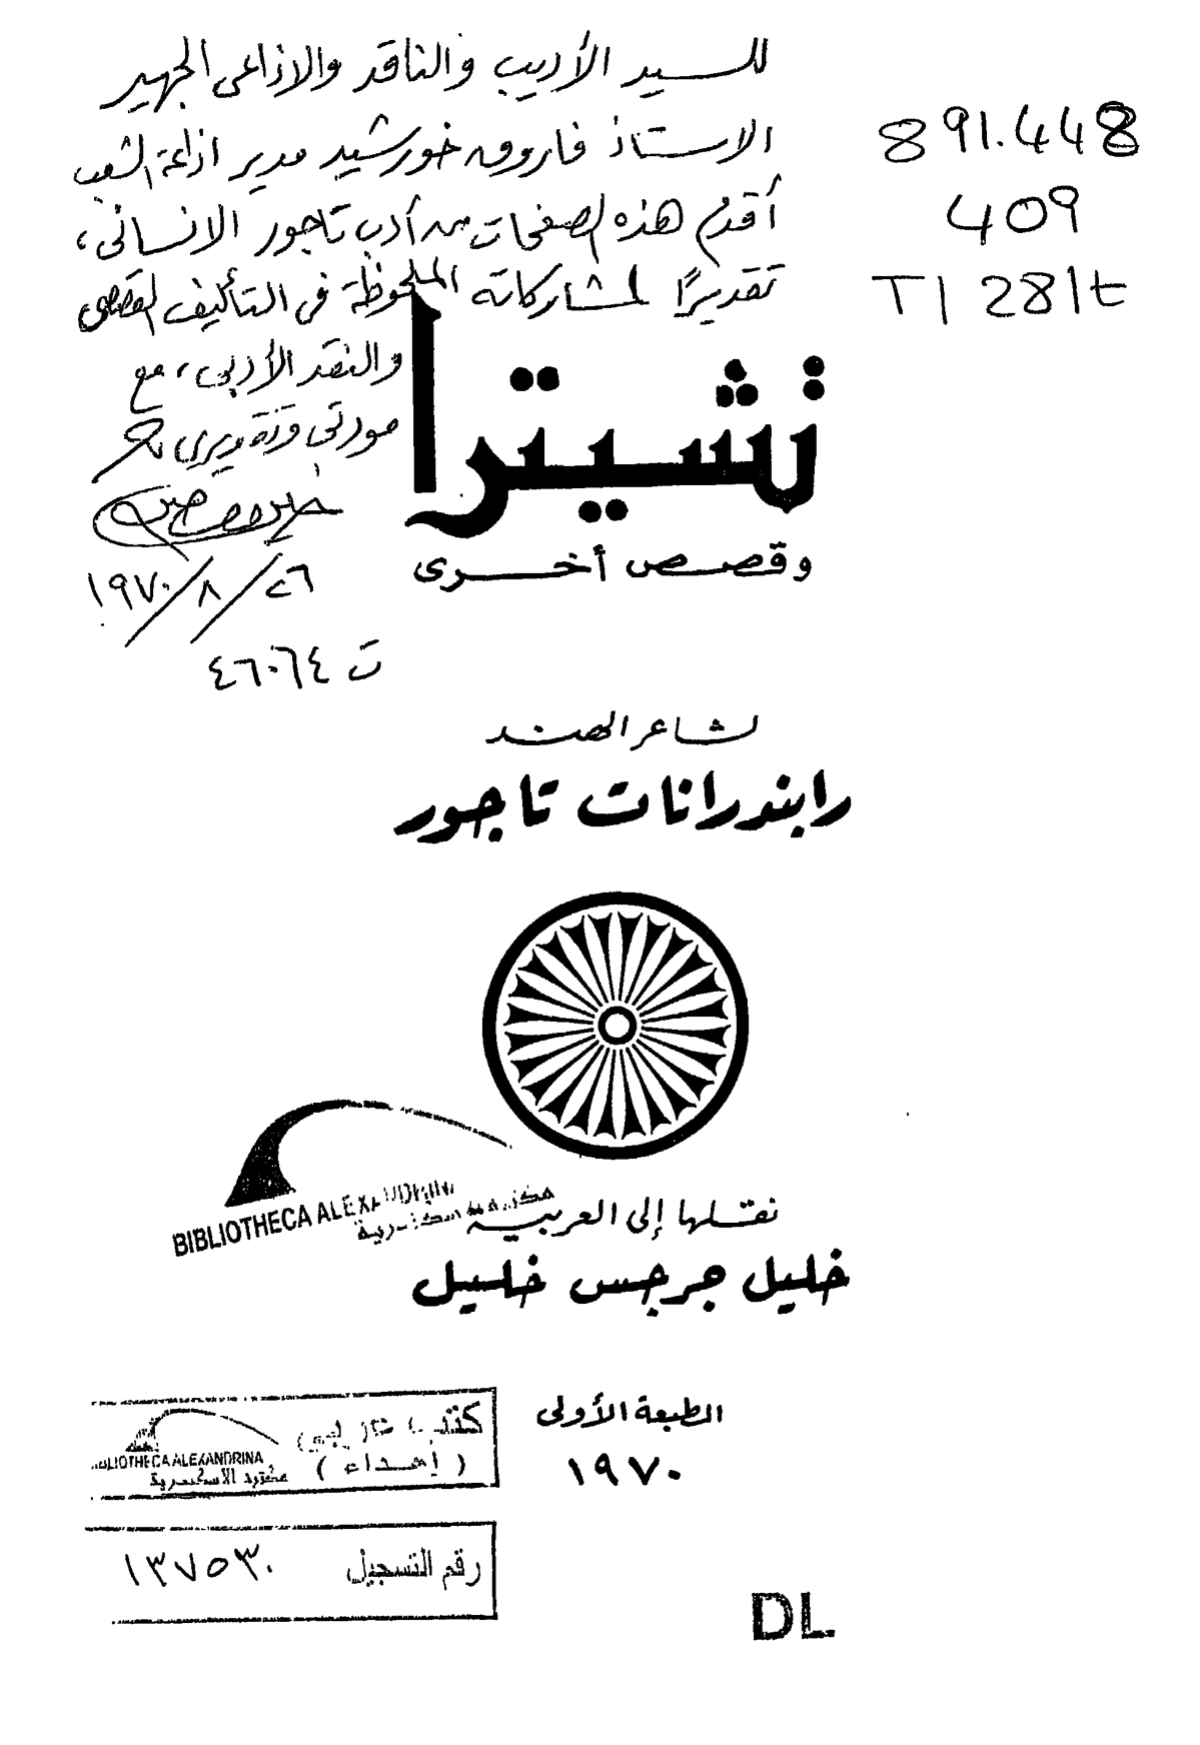 للسيد الأديب والناقد والاذاعى الجهير
الاستاذ فاروق خورشيد مدير اذاعة الشعب
أقدم هذه الصفحات من أدب تاجور الانسانى ،
تقديرًا لمشاركاته الملحوظة فى التأليف القصصى
والنقد الأدبى ، مع
مودتى وتقديرى
٢٦/٨/١٩٧٠
ت ٤٦٠٦٤
891.448
409
T1 281t
تشيترا
وقصص أخرى
لشاعر الهند
رابندرانات تاجور
BIBLIOTHECA ALEXANDRINA
نقلها إلى العربية
خليل جرجس خليل
الطبعة الأولى
١٩٧٠
BIBLIOTHECA ALEXANDRINA
مكتبة الاسكندرية
( إهداء )
رقم التسجيل ١٣٧٥٣٠
DL